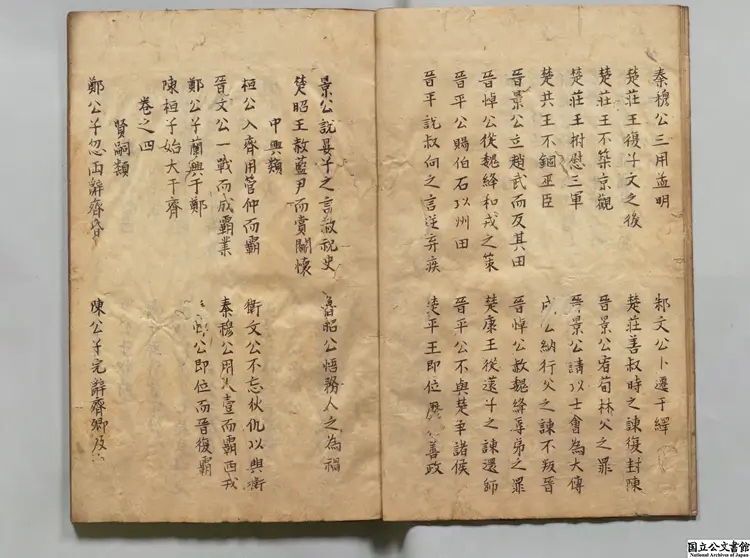 秦穆公三用孟明　邾文公卜遷于繹
楚莊王復子文之後　楚莊善叔時之諫復封陳
楚莊王不築京觀　晉景公宥荀林父之罪
楚莊王拊慰三軍　晉景公請以士會為大傅
楚共王不錮巫臣　成公納行父之諫不叛晉
晉景公立趙武而反其田　晉悼公赦魏絳辱弟之罪
晉悼公從魏絳和戎之策　楚康王從薳子之諫還師
晉平公賜伯石以州田　晉平公不與楚爭諸侯
晉平說叔向之言逆弃疾　楚平王即位善政
景公說晏子之言赦祝史　魯昭公悟務人之為禍
楚昭王赦藍尹而賞鬬懷
中興類
桓公入齊用管仲而霸　衛文公不忘狄仇以興衛
晉文公一戰而成霸業　秦穆公用人壹而霸西戎
鄭公子蘭興于鄭　公即位而晉復霸
陳桓子始大于齊
卷之四
賢嗣類
鄭公子忽兩辭齊昏　陳公子完辭齊卿及
国立公文書館
National Archives of Japan